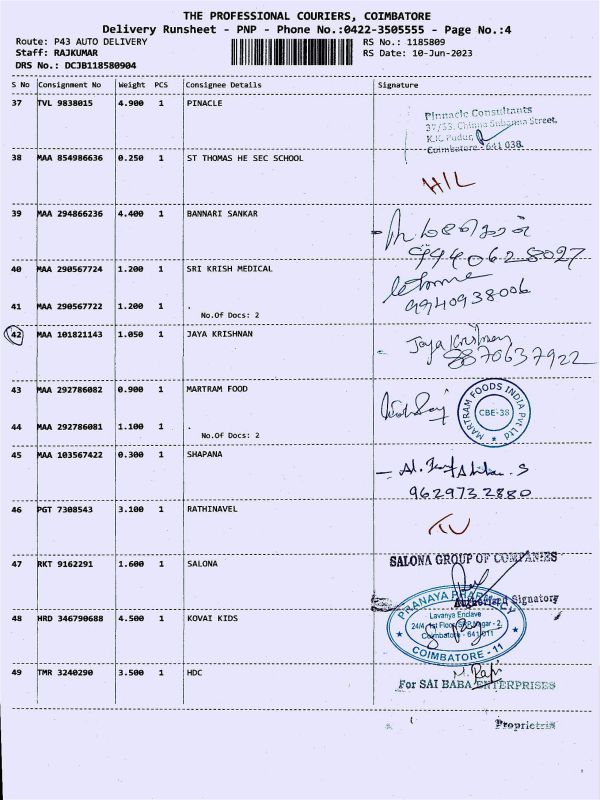 THE PROFESSIONAL COURIERS, COIMBATORE
Delivery Runsheet - PNP - Phone No.:0422-3505555 - Page No.:4
Route: P43 AUTO DELIVERY RS No.: 1185809
Staff: RAJKUMAR RS Date: 10-Jun-2023
DRS No.: DCJB118580904
S No Consignment No Weight PCS Consignee Details Signature
37 TVL 9838015 4.900 1 PINACLE
Pinnacle Consultants
37/53, Chinna Subanna Street,
K.K. Pudur,
Coimbatore - 641 038.
38 MAA 854986636 0.250 1 ST THOMAS HE SEC SCHOOL
H/L
39 MAA 294866236 4.400 1 BANNARI SANKAR
9440628027
40 MAA 290567724 1.200 1 SRI KRISH MEDICAL
41 MAA 290567722 1.200 1 .
9940938006
No.Of Docs: 2
42 MAA 101821143 1.050 1 JAYA KRISHNAN
Jaya Krishnan
8870637922
43 MAA 292786082 0.900 1 MARTRAM FOOD
MARTRAM FOODS INDIA Pvt Ltd
CBE-38
44 MAA 292786081 1.100 1 .
No.Of Docs: 2
45 MAA 103567422 0.300 1 SHAPANA
9629732880
46 PGT 7308543 3.100 1 RATHINAVEL
47 RKT 9162291 1.600 1 SALONA
SALONA GROUP OF COMPANIES
Authorised Signatory
48 HRD 346790688 4.500 1 KOVAI KIDS
PRANAYA PHARMACY
Lavanya Enclave
24/4, 1st Floor, Nagar - 2,
Coimbatore - 641 011
COIMBATORE - 11
49 TMR 3240290 3.500 1 HDC
For SAI BABA ENTERPRISES
Proprietrix